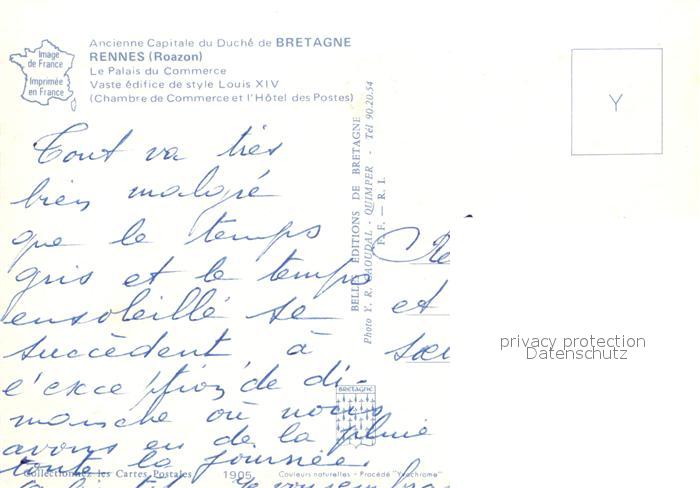 Image
de France
Imprimée
en France
Ancienne Capitale du Duché de BRETAGNE
RENNES (Roazon)
Le Palais du Commerce
Vaste édifice de style Louis XIV
(Chambre de Commerce et l'Hôtel des Postes)
Y
Tout va très
bien malgré
que le temps
gris et le temps
ensoleillé se
succèdent à
l'exception de di-
manche où nous
avons eu de la pluie
toute la journée.
BELLES ÉDITIONS DE BRETAGNE
Photo Y. R. CAOUDAL - QUIMPER - Tél 90.20.54
F. F. — R. I.
et
privacy protection
Datenschutz
BRETAGNE
Collectionnez les Cartes Postales
1905
Couleurs naturelles - Procédé "Yvachrome"